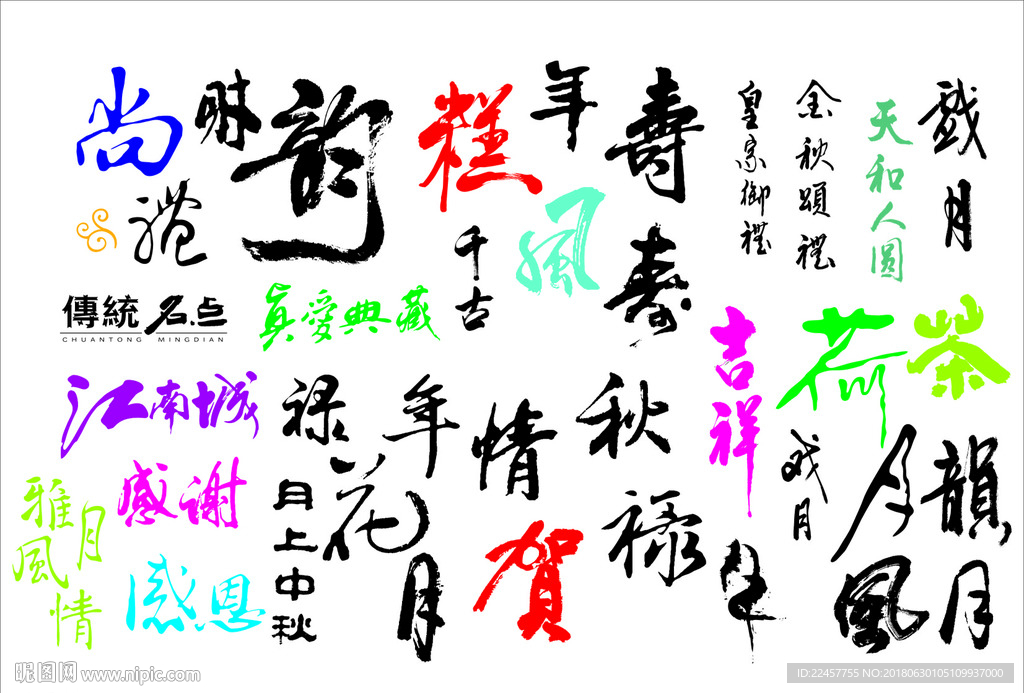 尚
時
韵
糕
年
壽
皇家御禮
金秋頌禮
天和人圓
戲月
禮
千古
風
寿
傳統名点
CHUANTONG MINGDIAN
真愛典藏
吉祥
荷
茶
江南城
禄
年
情
秋
戏月
月
韻
雅月風情
感謝
月上中秋
花
月
賀
禄
風
月
感恩
昵图网 www.nipic.com
ID:22457755 NO:20180630105109937000